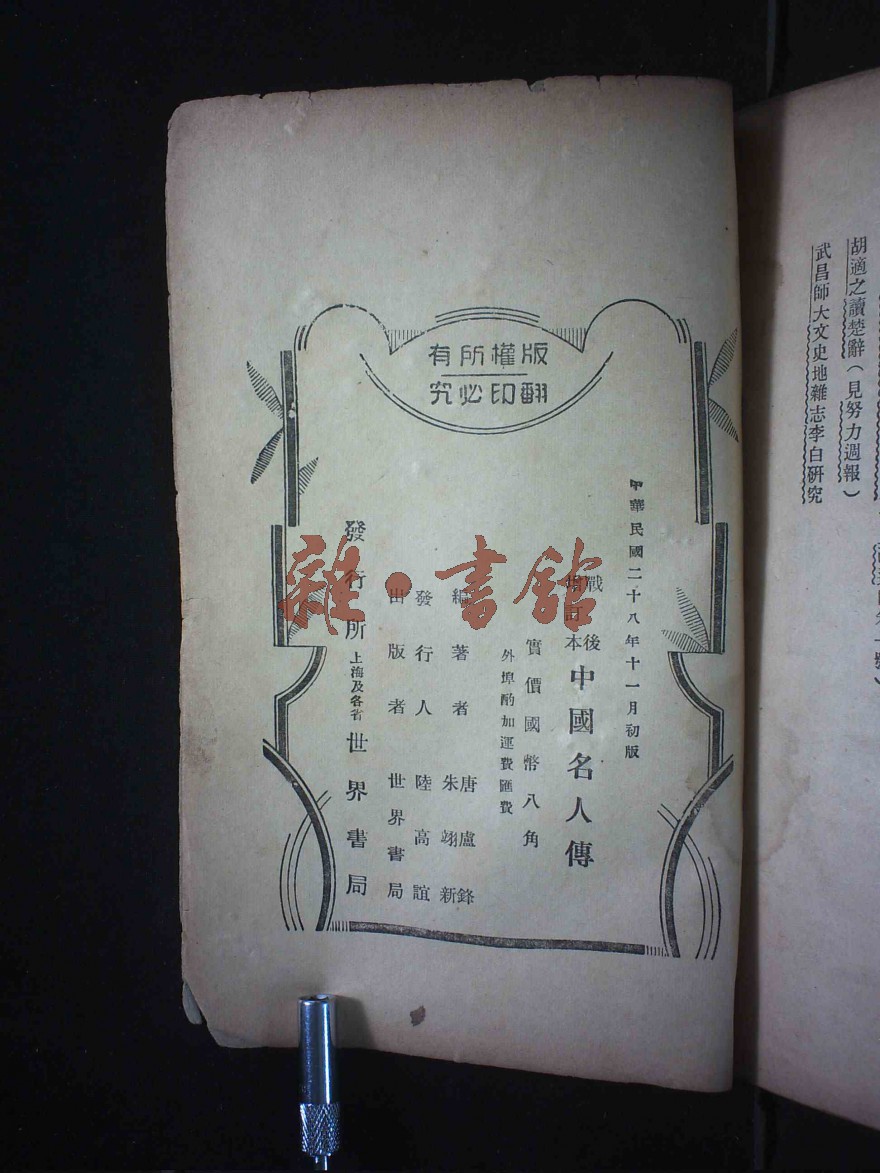 胡適之讀楚辭（見努力週報）
武昌師大文史地雜志李白硏究
版權所有
翻印必究
中華民國二十八年十一月初版
戰後
增訂本
中國名人傳
實價國幣八角
外埠酌加運費匯費
編著者
唐盧鋒
朱翊新
發行人 陸高誼
出版者 世界書局
發行所 上海及各省 世界書局
雜·書館